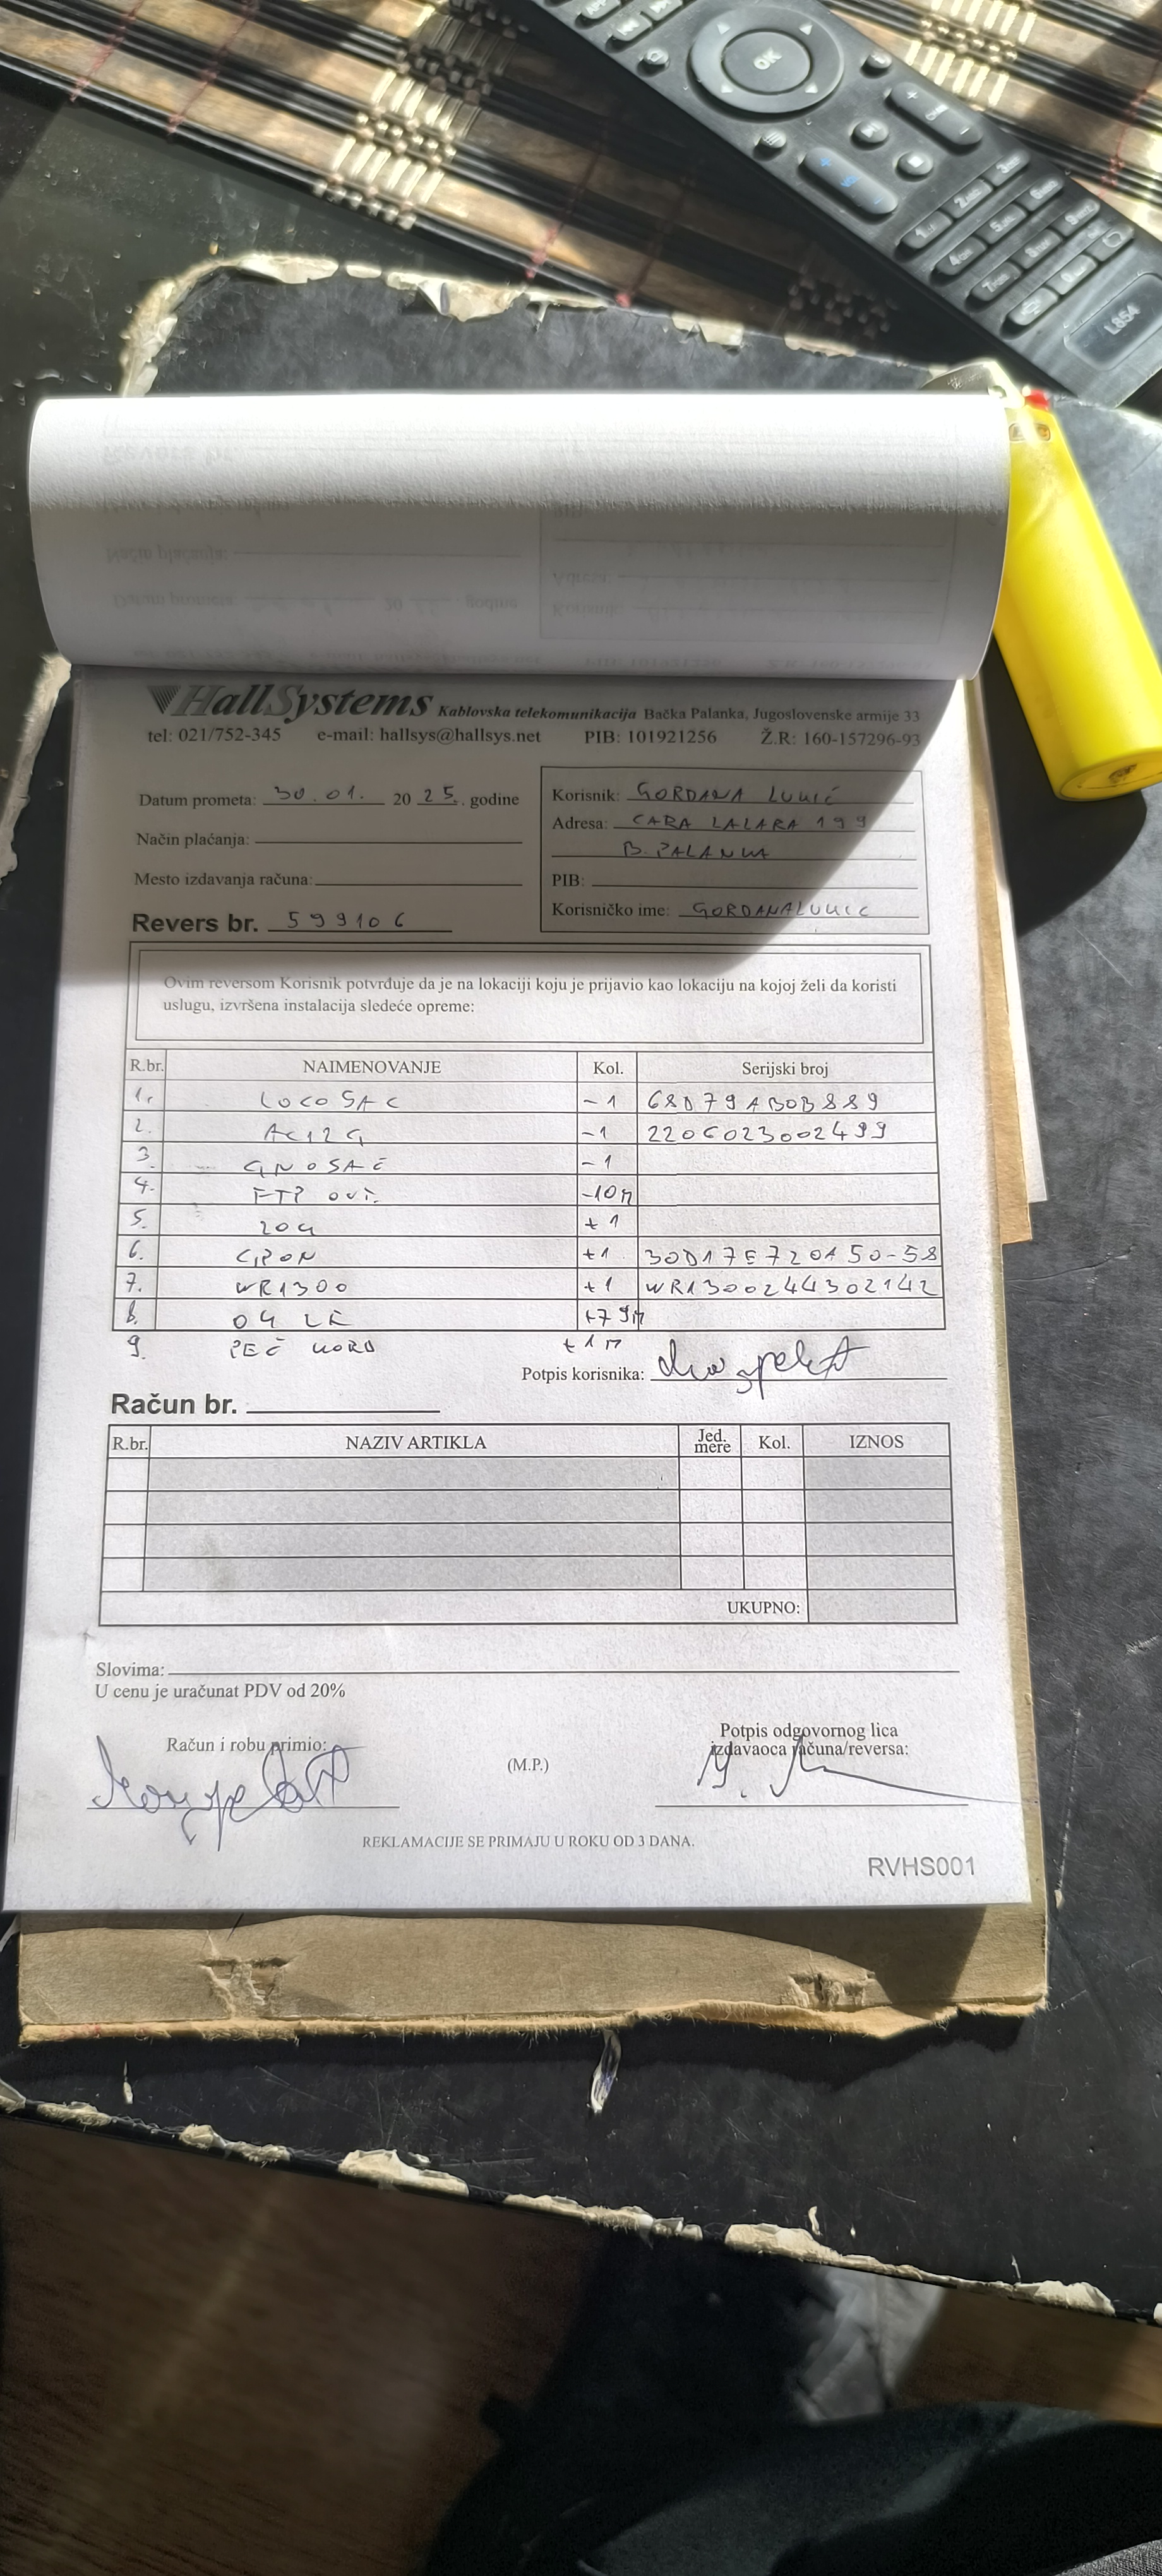 OK
L854
HallSystems Kablovska telekomunikacija Bačka Palanka, Jugoslovenske armije 33
tel: 021/752-345 e-mail: hallsys@hallsys.net PIB: 101921256 Ž.R: 160-157296-93
Datum prometa: 30.01. 20 25. godine
Način plaćanja:
Mesto izdavanja računa:
Revers br. 599106
Korisnik: GORDANA LUKIĆ
Adresa: CARA LAZARA 199
B. PALANKA
PIB:
Korisničko ime: GORDANALUKIC
Ovim reversom Korisnik potvrđuje da je na lokaciji koju je prijavio kao lokaciju na kojoj želi da koristi
uslugu, izvršena instalacija sledeće opreme:
R.br. NAIMENOVANJE Kol. Serijski broj
1. LOCO 5AC -1 68D79AB0B889
2. AC12G -1 2206023002499
3. -1
4. FTP -10m
5. 20G +1
6. GPON +1 30D17E720A50-58
7. WR1300 +1 WR1300244302142
8. +79m
9. +1m
Potpis korisnika:
Račun br.
R.br. NAZIV ARTIKLA Jed. mere Kol. IZNOS
UKUPNO:
Slovima:
U cenu je uračunat PDV od 20%
Račun i robu primio:
(M.P.)
Potpis odgovornog lica
izdavaoca računa/reversa:
REKLAMACIJE SE PRIMAJU U ROKU OD 3 DANA.
RVHS001